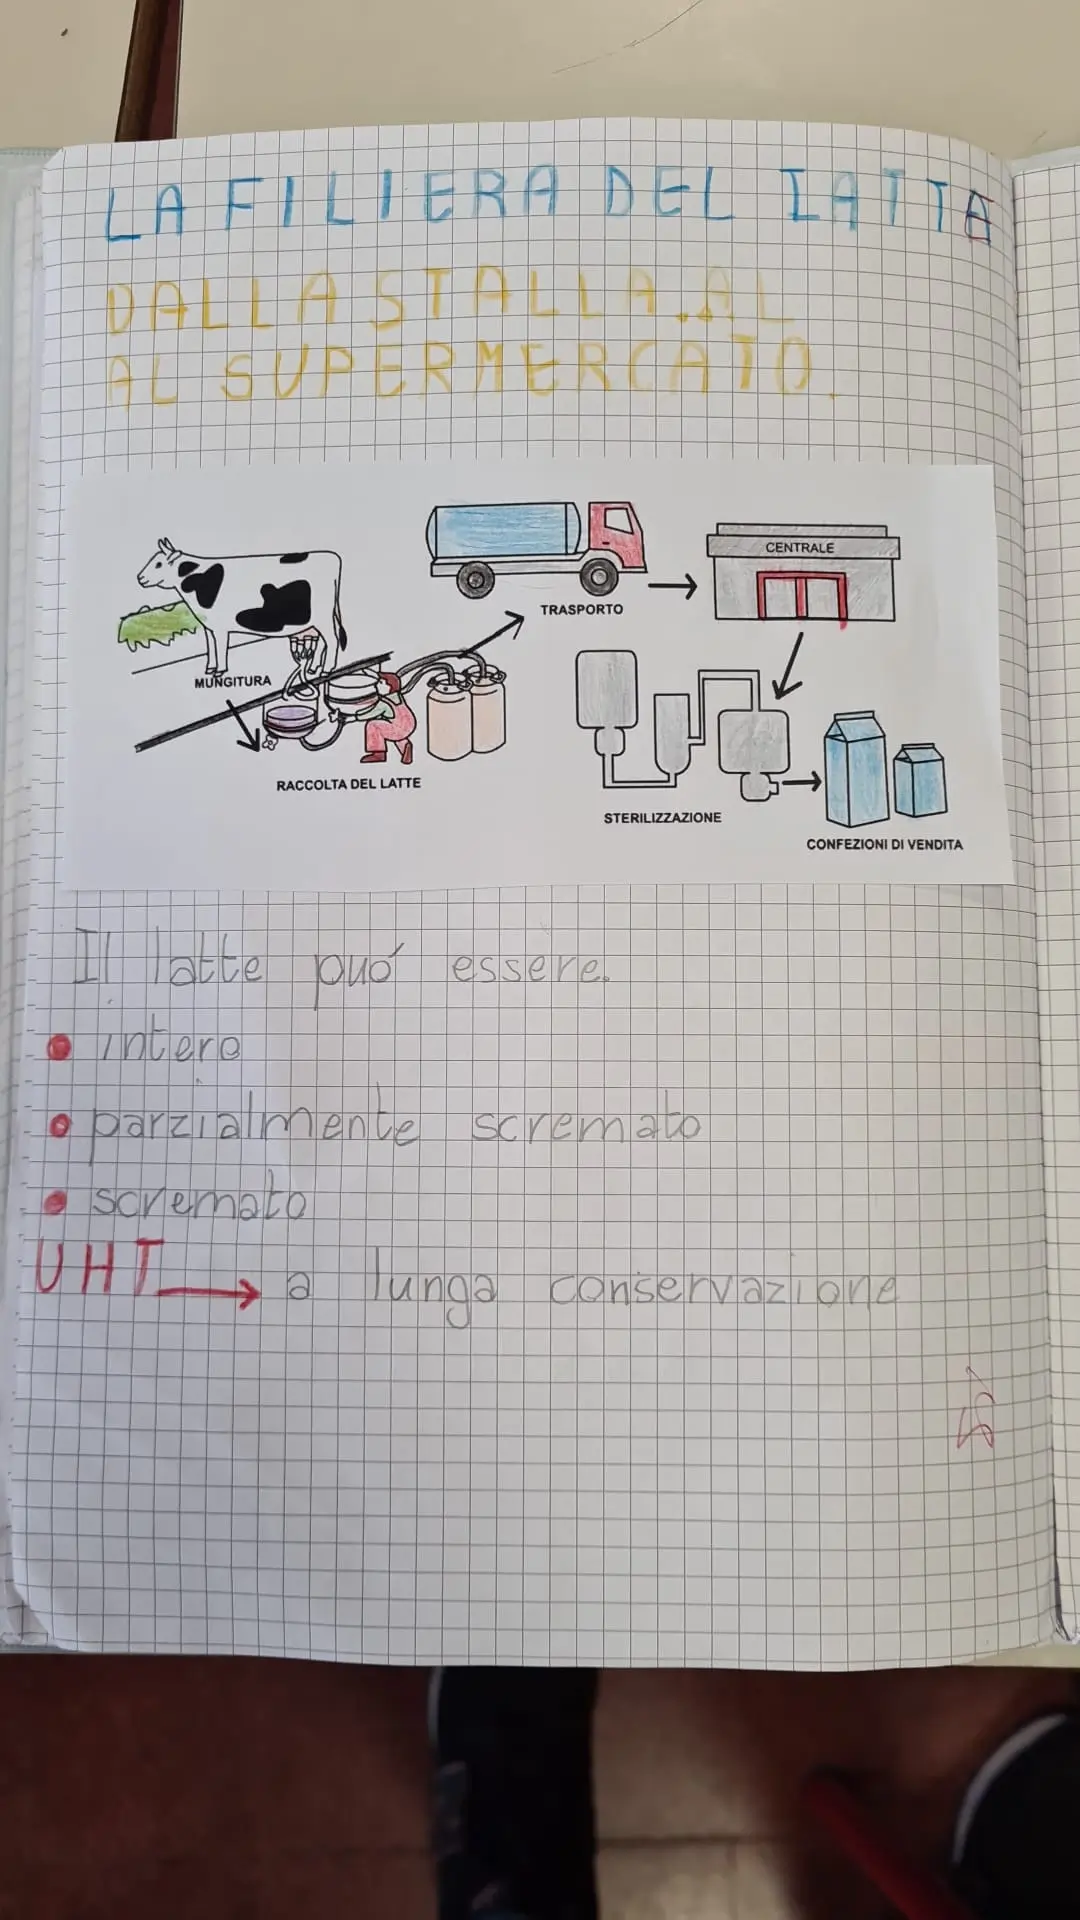 LA FILIERA DEL LATTE
DALLA STALLA.AL
AL SUPERMERCATO.
CENTRALE
TRASPORTO
MUNGITURA
RACCOLTA DEL LATTE
STERILIZZAZIONE
CONFEZIONI DI VENDITA
Il latte puó essere.
• intero
• parzialmente scremato
• scremato
UHT → a lunga conservazione